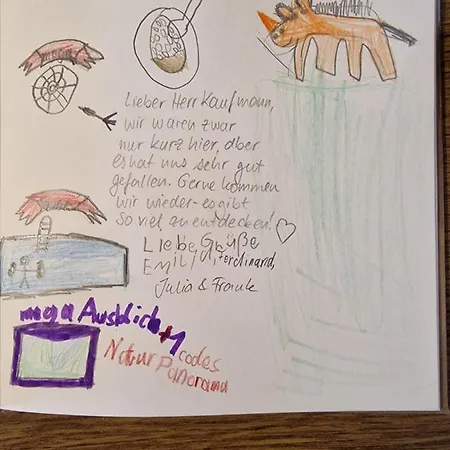 Lieber Herr Kaufmann,
wir waren zwar
nur kurz hier, aber
es hat uns sehr gut
gefallen. Gerne kommen
wir wieder - es gibt
so viel zu entdecken!
Liebe Grüße
Emilia, Ferdinand,
Julia & Frauke
mega Ausblick +1
codes
Natur Panorama